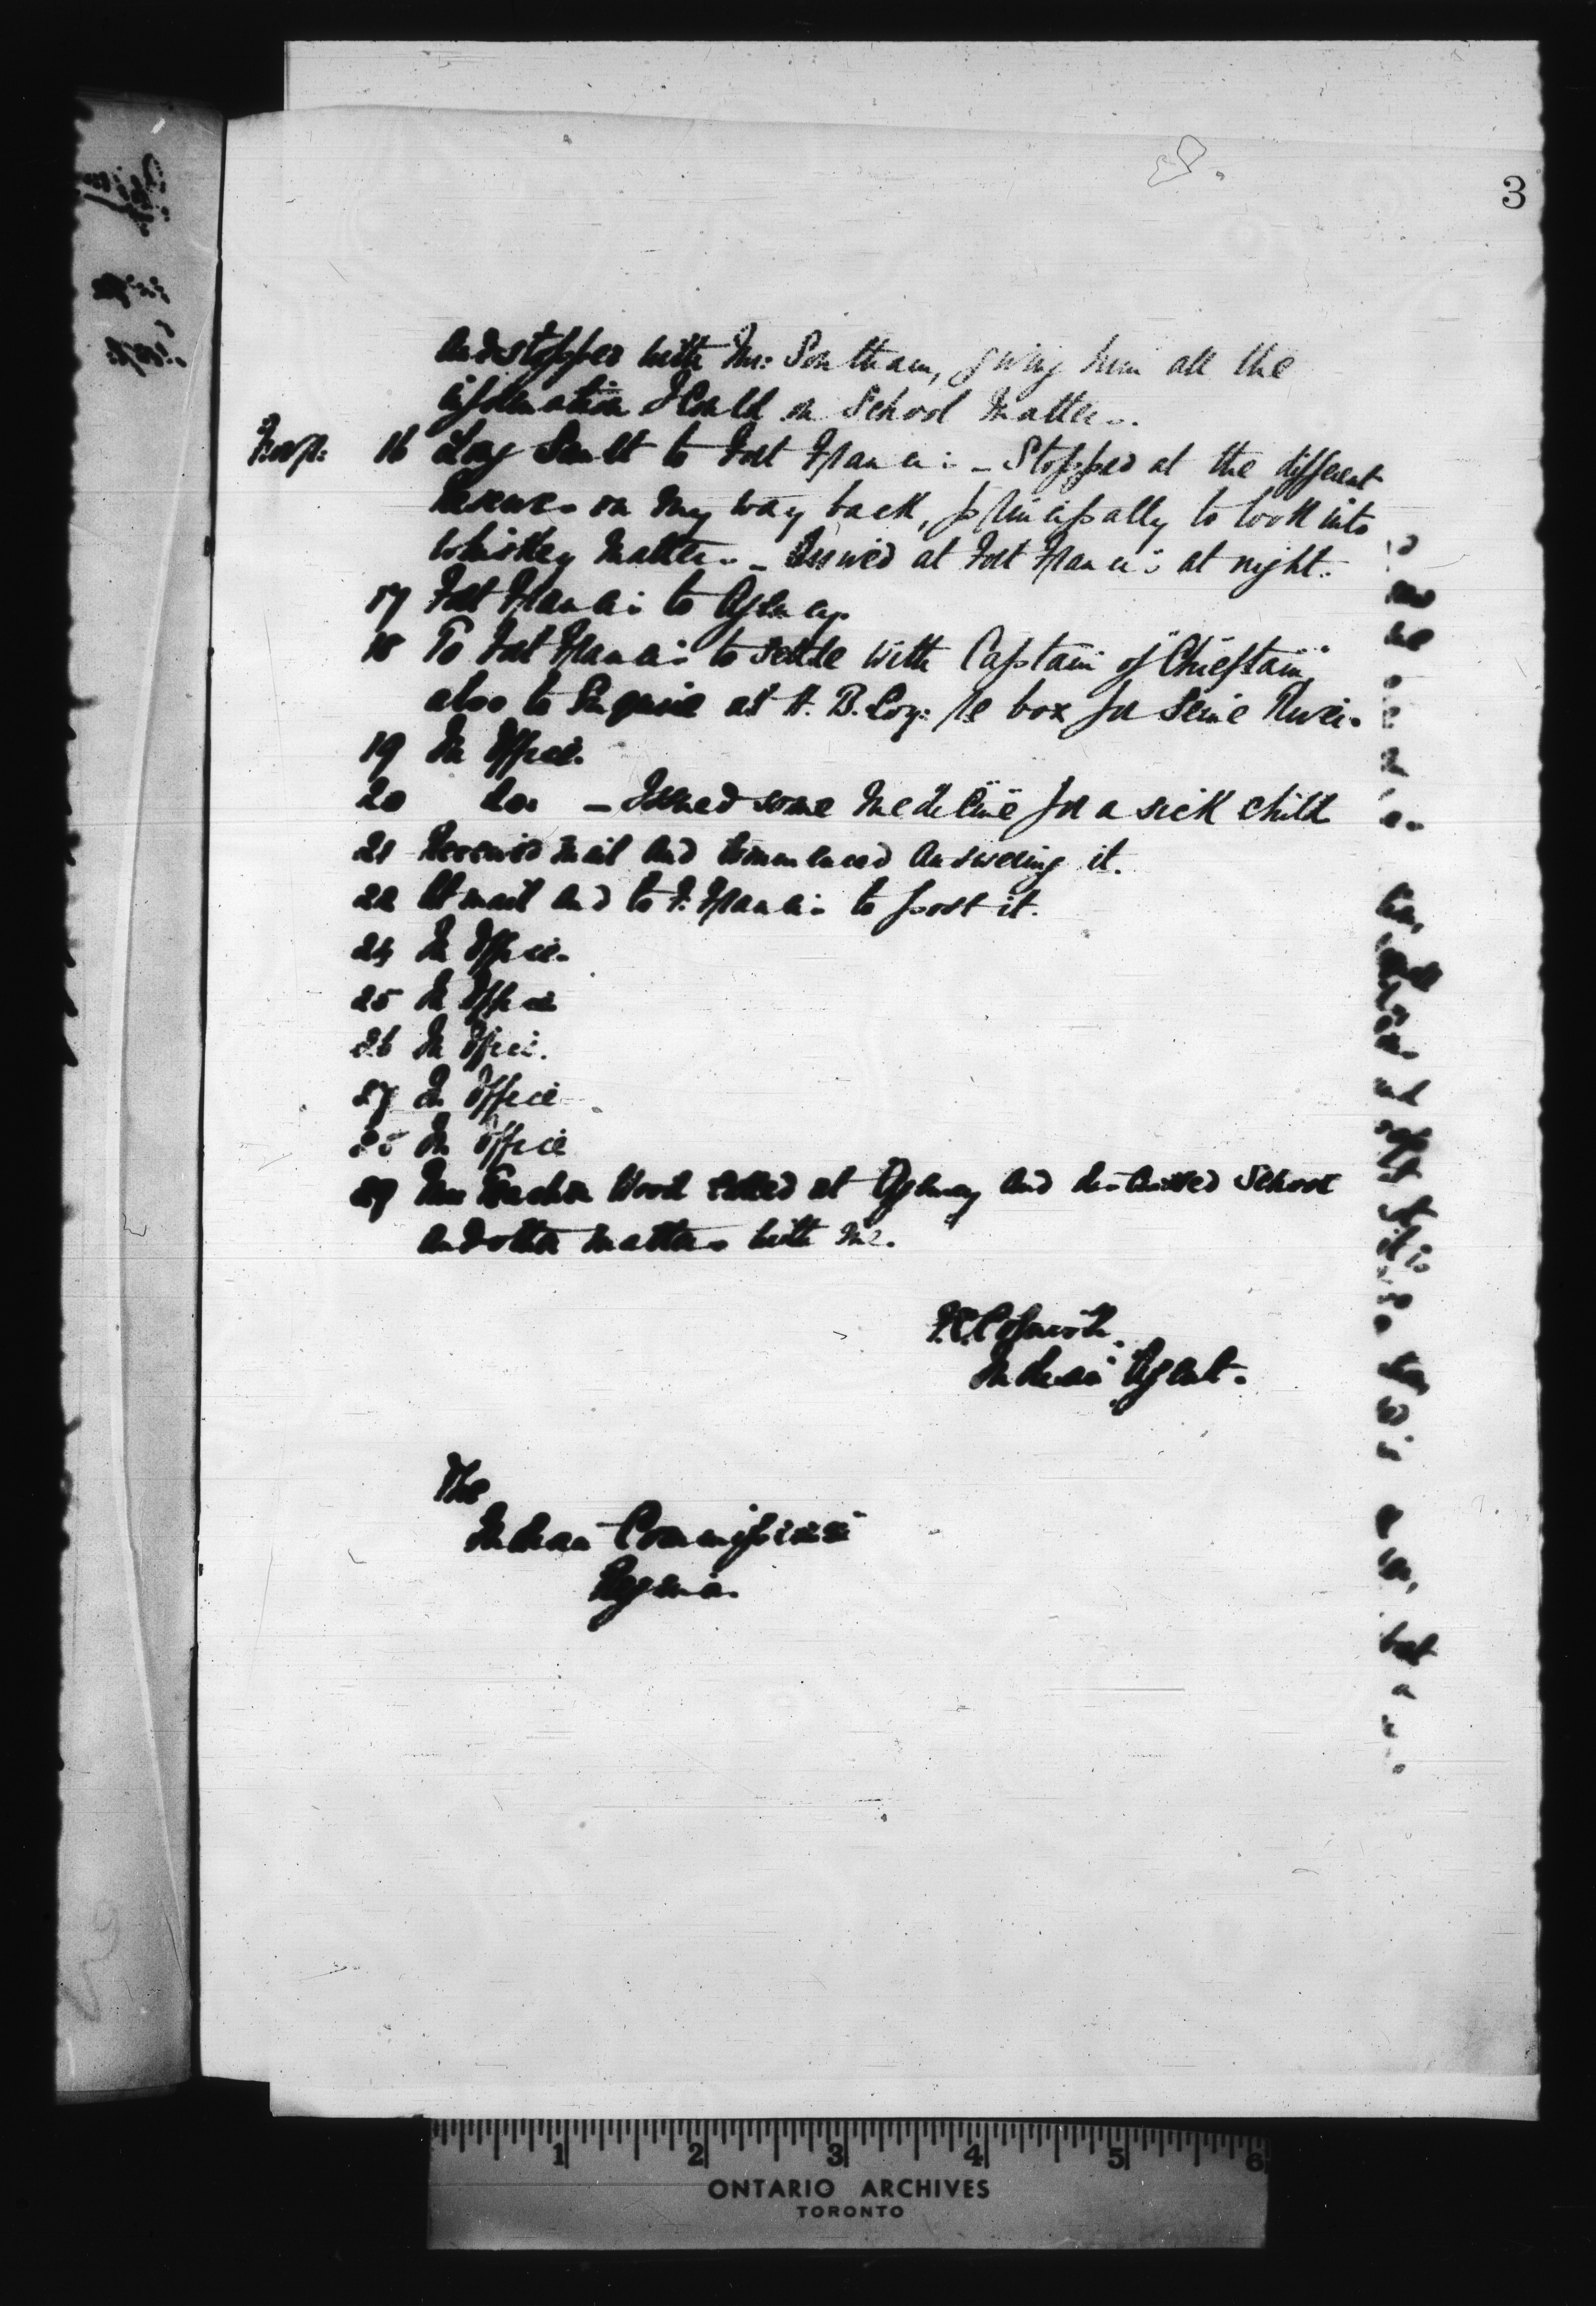 3
and stopped with Mr: Southam, giving him all the
information I could on School Matters.
16 Long Sault to Fort Francis - Stopped at the different
Reserves on my way back, principally to look into
Whiskey Matters. - Arrived at Fort Francis at night.
17 Fort Francis to Agency.
18 To Fort Francis to settle with Captain of "Chieftain",
also to Enquire at H. B. Coy: re box for Seine River.
19 In Office.
20 do. - Issued some Medicine for a sick child
21 Received mail and commenced answering it.
22 At mail and to F. Francis to post it.
24 In Office.
25 In Office
26 In Office.
27 In Office
28 In Office
29 Wood called at Agency and discussed School
and other matters with me.
Indian Agent.
The
Indian Commissioner
Regina.
but
a
1 2 3 4 5 6
ONTARIO ARCHIVES
TORONTO